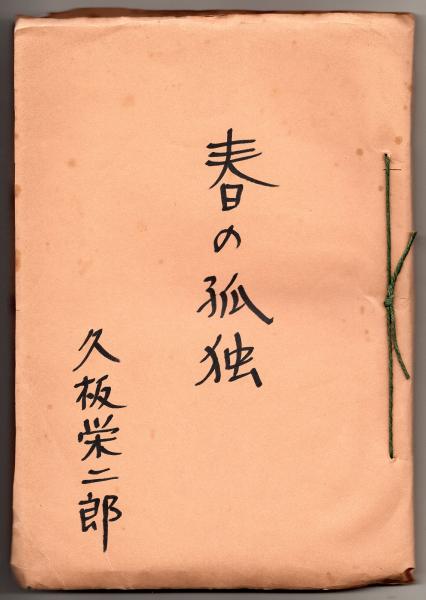 春の孤独
久板栄二郎